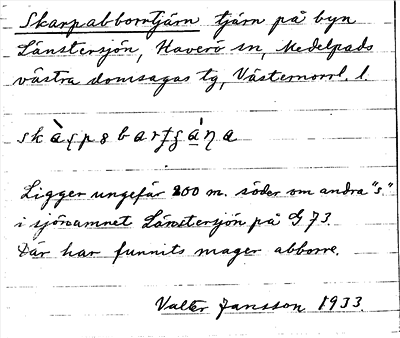 Skarpabborrtjärn tjärn på byn
Länstersjön, Haverö sn, Medelpads
västra domsagas tg, Västernorrl. l.
Ligger ungefär 200 m. söder om andra "s"
i sjönamnet Länstersjön på G 73.
Där har funnits mager abborre.
Valter Jansson 1933.